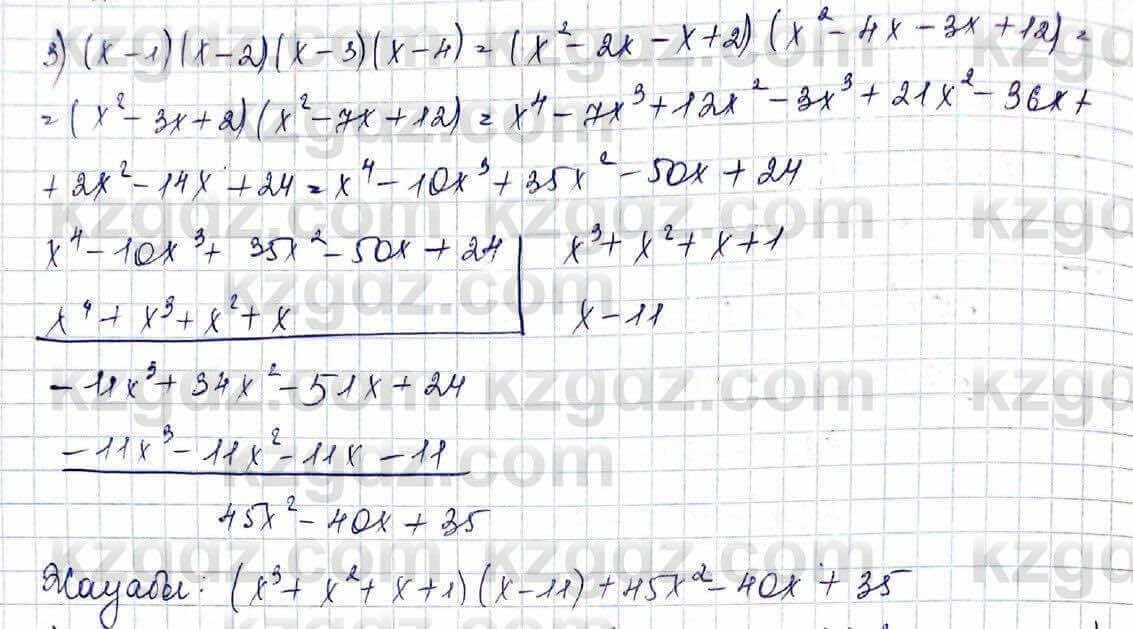 3) (x-1)(x-2)(x-3)(x-4) = (x² - 2x - x + 2) (x² - 4x - 3x + 12) =
= (x² - 3x + 2)(x² - 7x + 12) = x⁴ - 7x³ + 12x² - 3x³ + 21x² - 36x +
+ 2x² - 14x + 24 = x⁴ - 10x³ + 35x² - 50x + 24
x⁴ - 10x³ + 35x² - 50x + 24 | x³ + x² + x + 1
x⁴ + x³ + x² + x | x - 11
- 11x³ + 34x² - 51x + 24
- 11x³ - 11x² - 11x - 11
45x² - 40x + 35
Жауабы: (x³ + x² + x + 1)(x - 11) + 45x² - 40x + 35
kzgdz.com